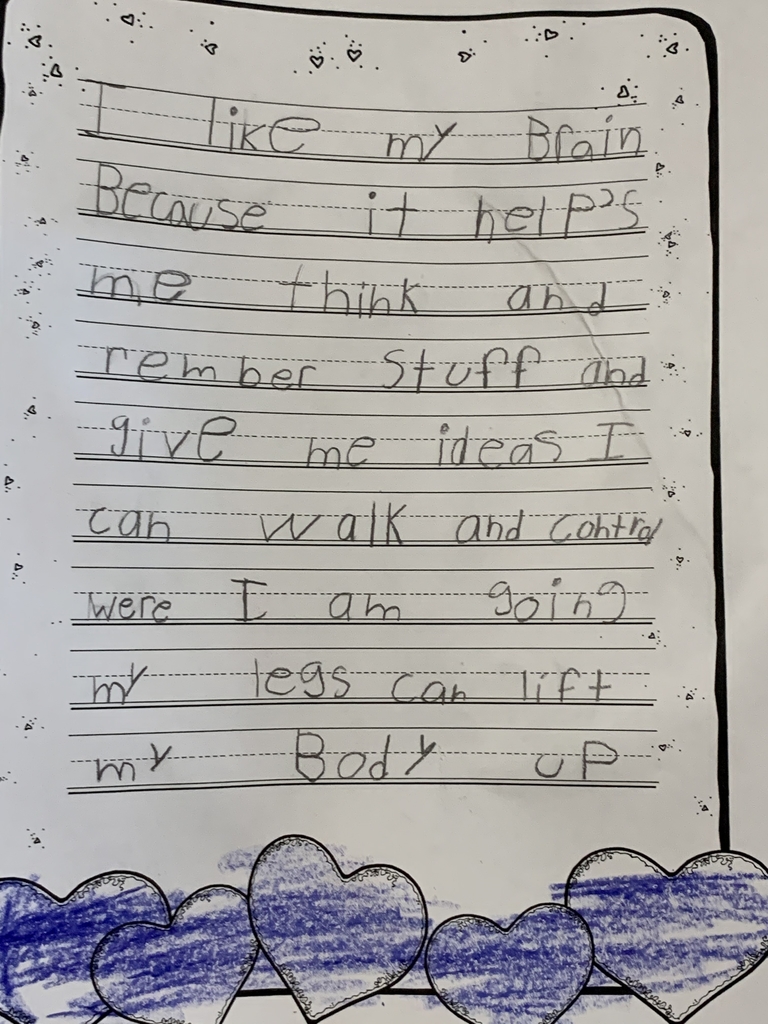 I like my Brain
Because it help's
me think and
rember stuff and
give me ideas I
can walk and control
were I am going
my legs can lift
my Body up